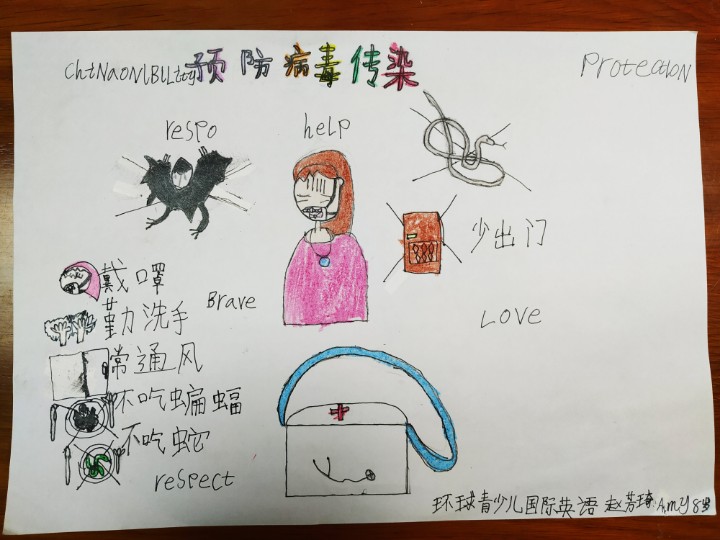 预防病毒传染
ChtNaONlBULtty
Protection
respo
help
少出门
戴口罩
Brave
勤洗手
Love
常通风
不吃蝙蝠
不吃蛇
respect
环球青少儿国际英语 赵芳琦 Amy 8岁